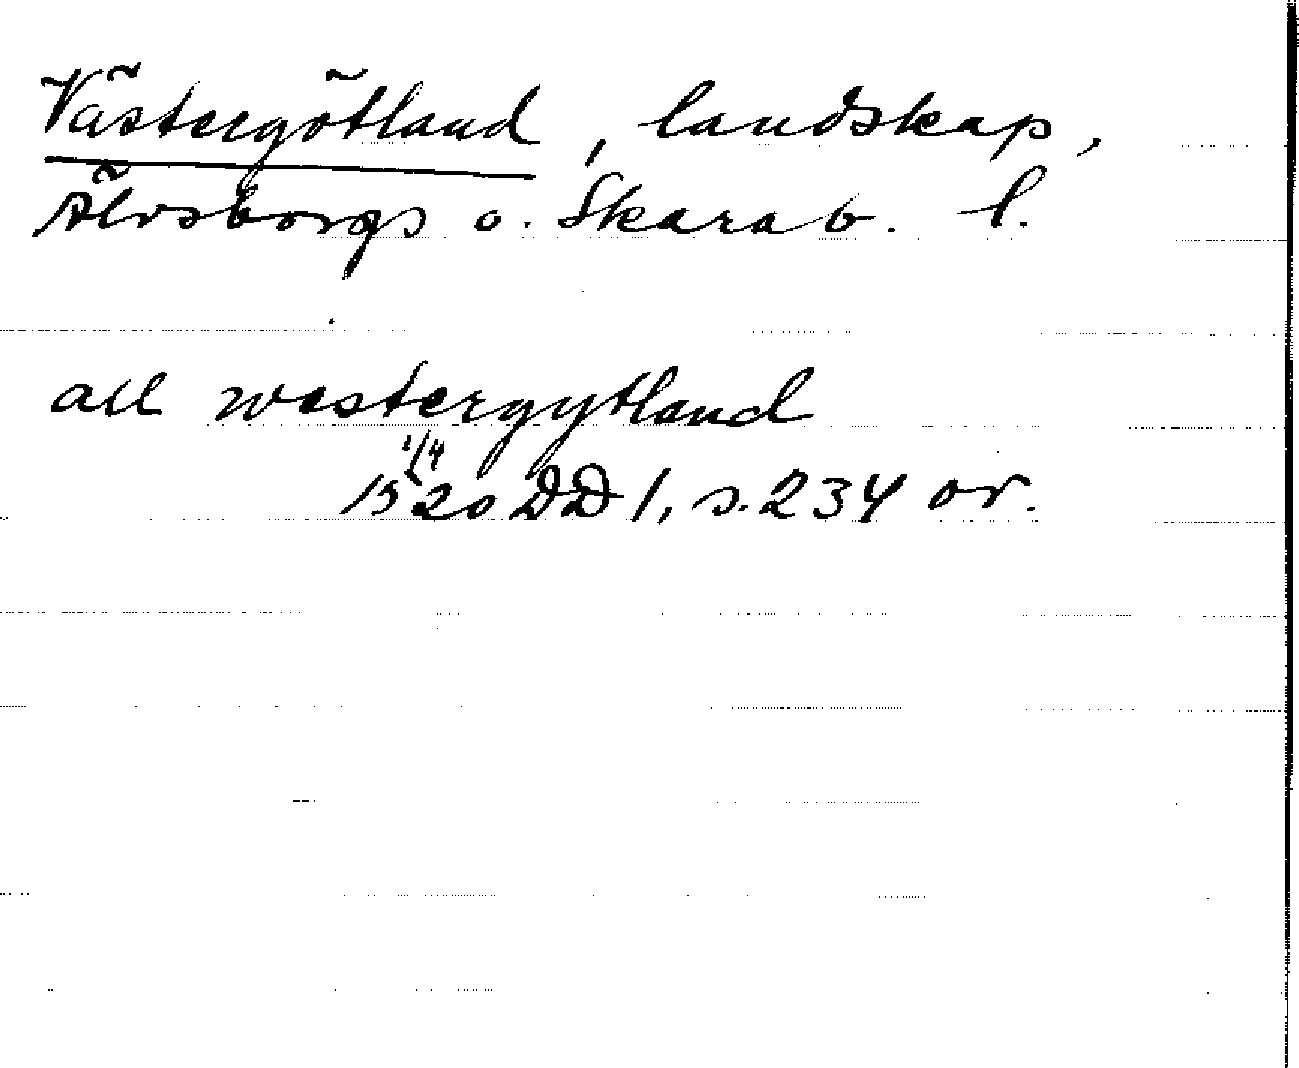 Västergötland, landskap,
Älvsborgs o. Skarab. l.
all westergytland
1/4
1520 DD 1, s. 234 or.